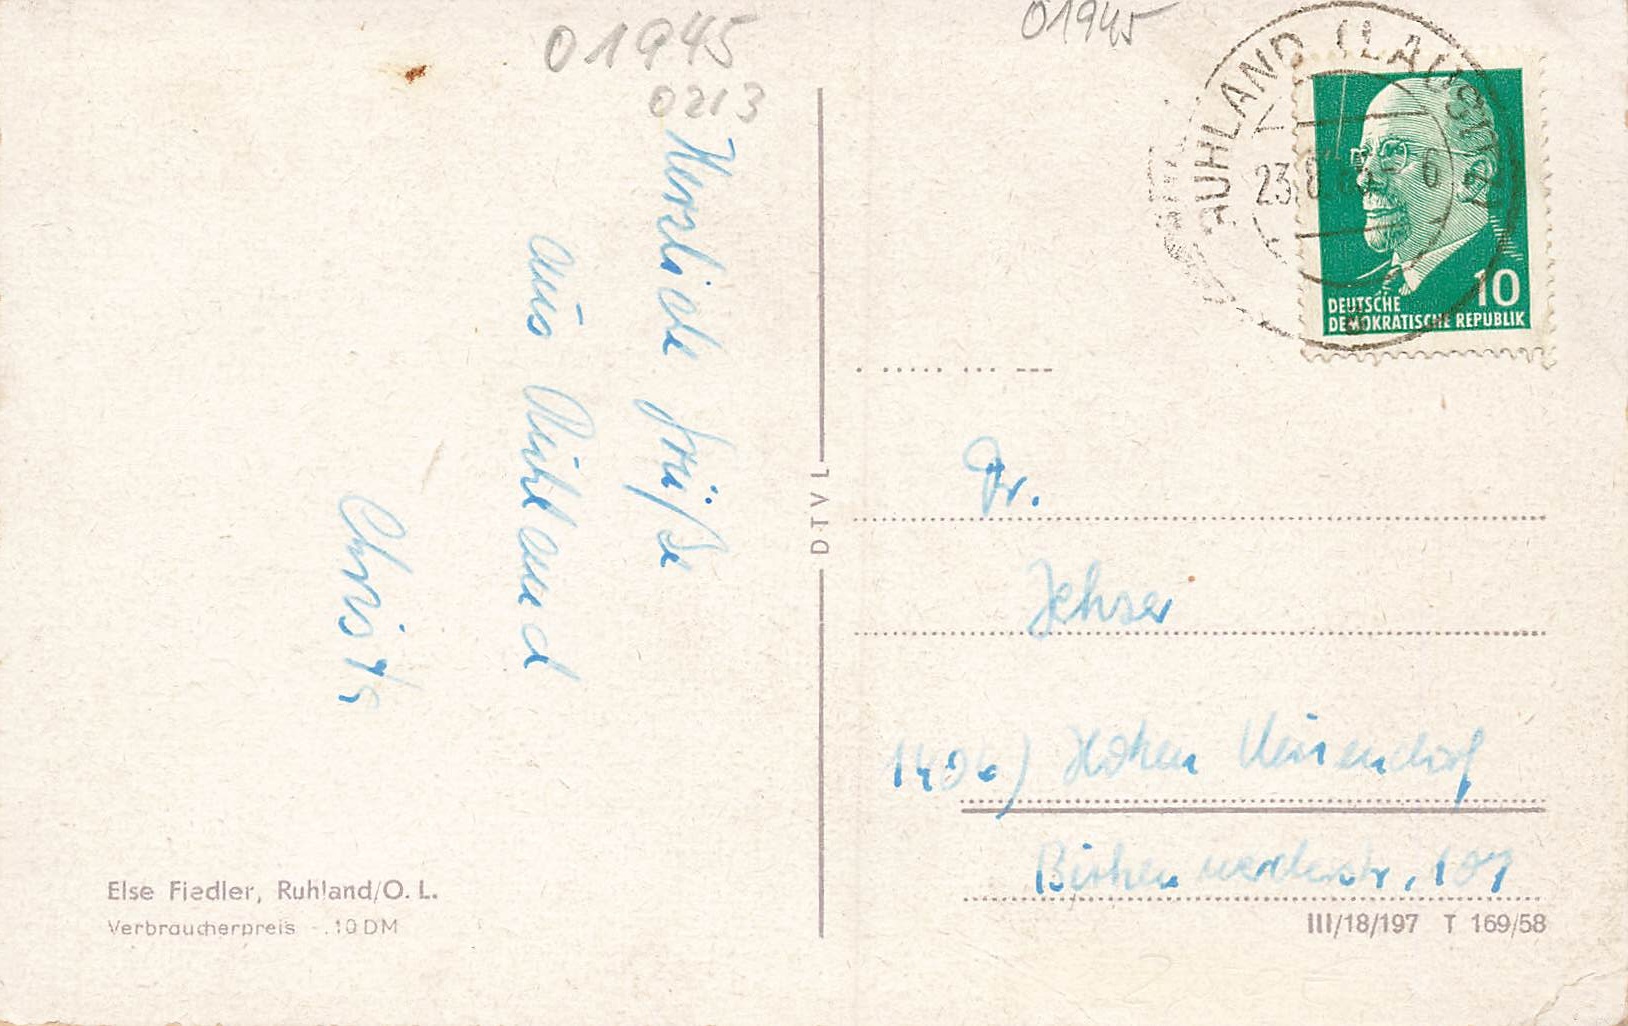 01945
0213
Herzliche Grüße
aus Ruhland
Christa
Else Fiedler, Ruhland/O. L.
Verbraucherpreis -.10 DM
DTVL
01945
RUHLAND (LAUSITZ)
DEUTSCHE
DEMOKRATISCHE REPUBLIK
10
Fr.
Hohen Neuendorf
Birkenwerderstr. 107
III/18/197 T 169/58